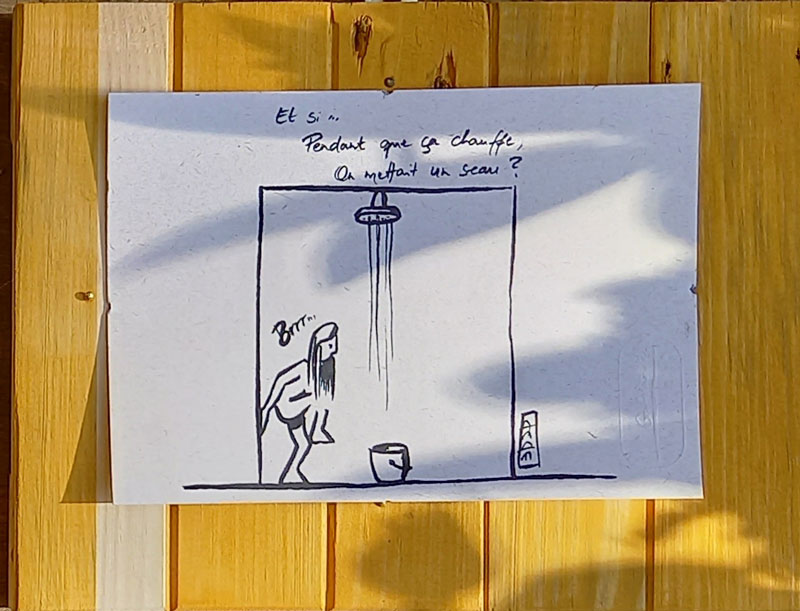 Et si...
Pendant que ça chauffe,
On mettait un seau ?
Brrr...